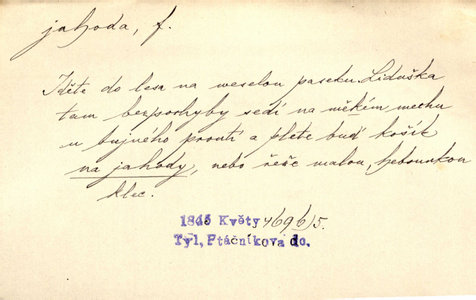 jahoda, f.
Jděte do lesa na weselou paseku. Liduška
tam bezpochyby sedí na měkím mechu
u bujného proutí a plete buď košík
na jahody, nebo řeže malou, hebounkou
klec.
1845 Květy 469 b/5.
Tyl, Ptáčníkova dc.